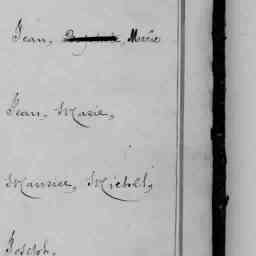 Jean, Marie
Jean, Marie,
Maurice, Michel,
Joseph.